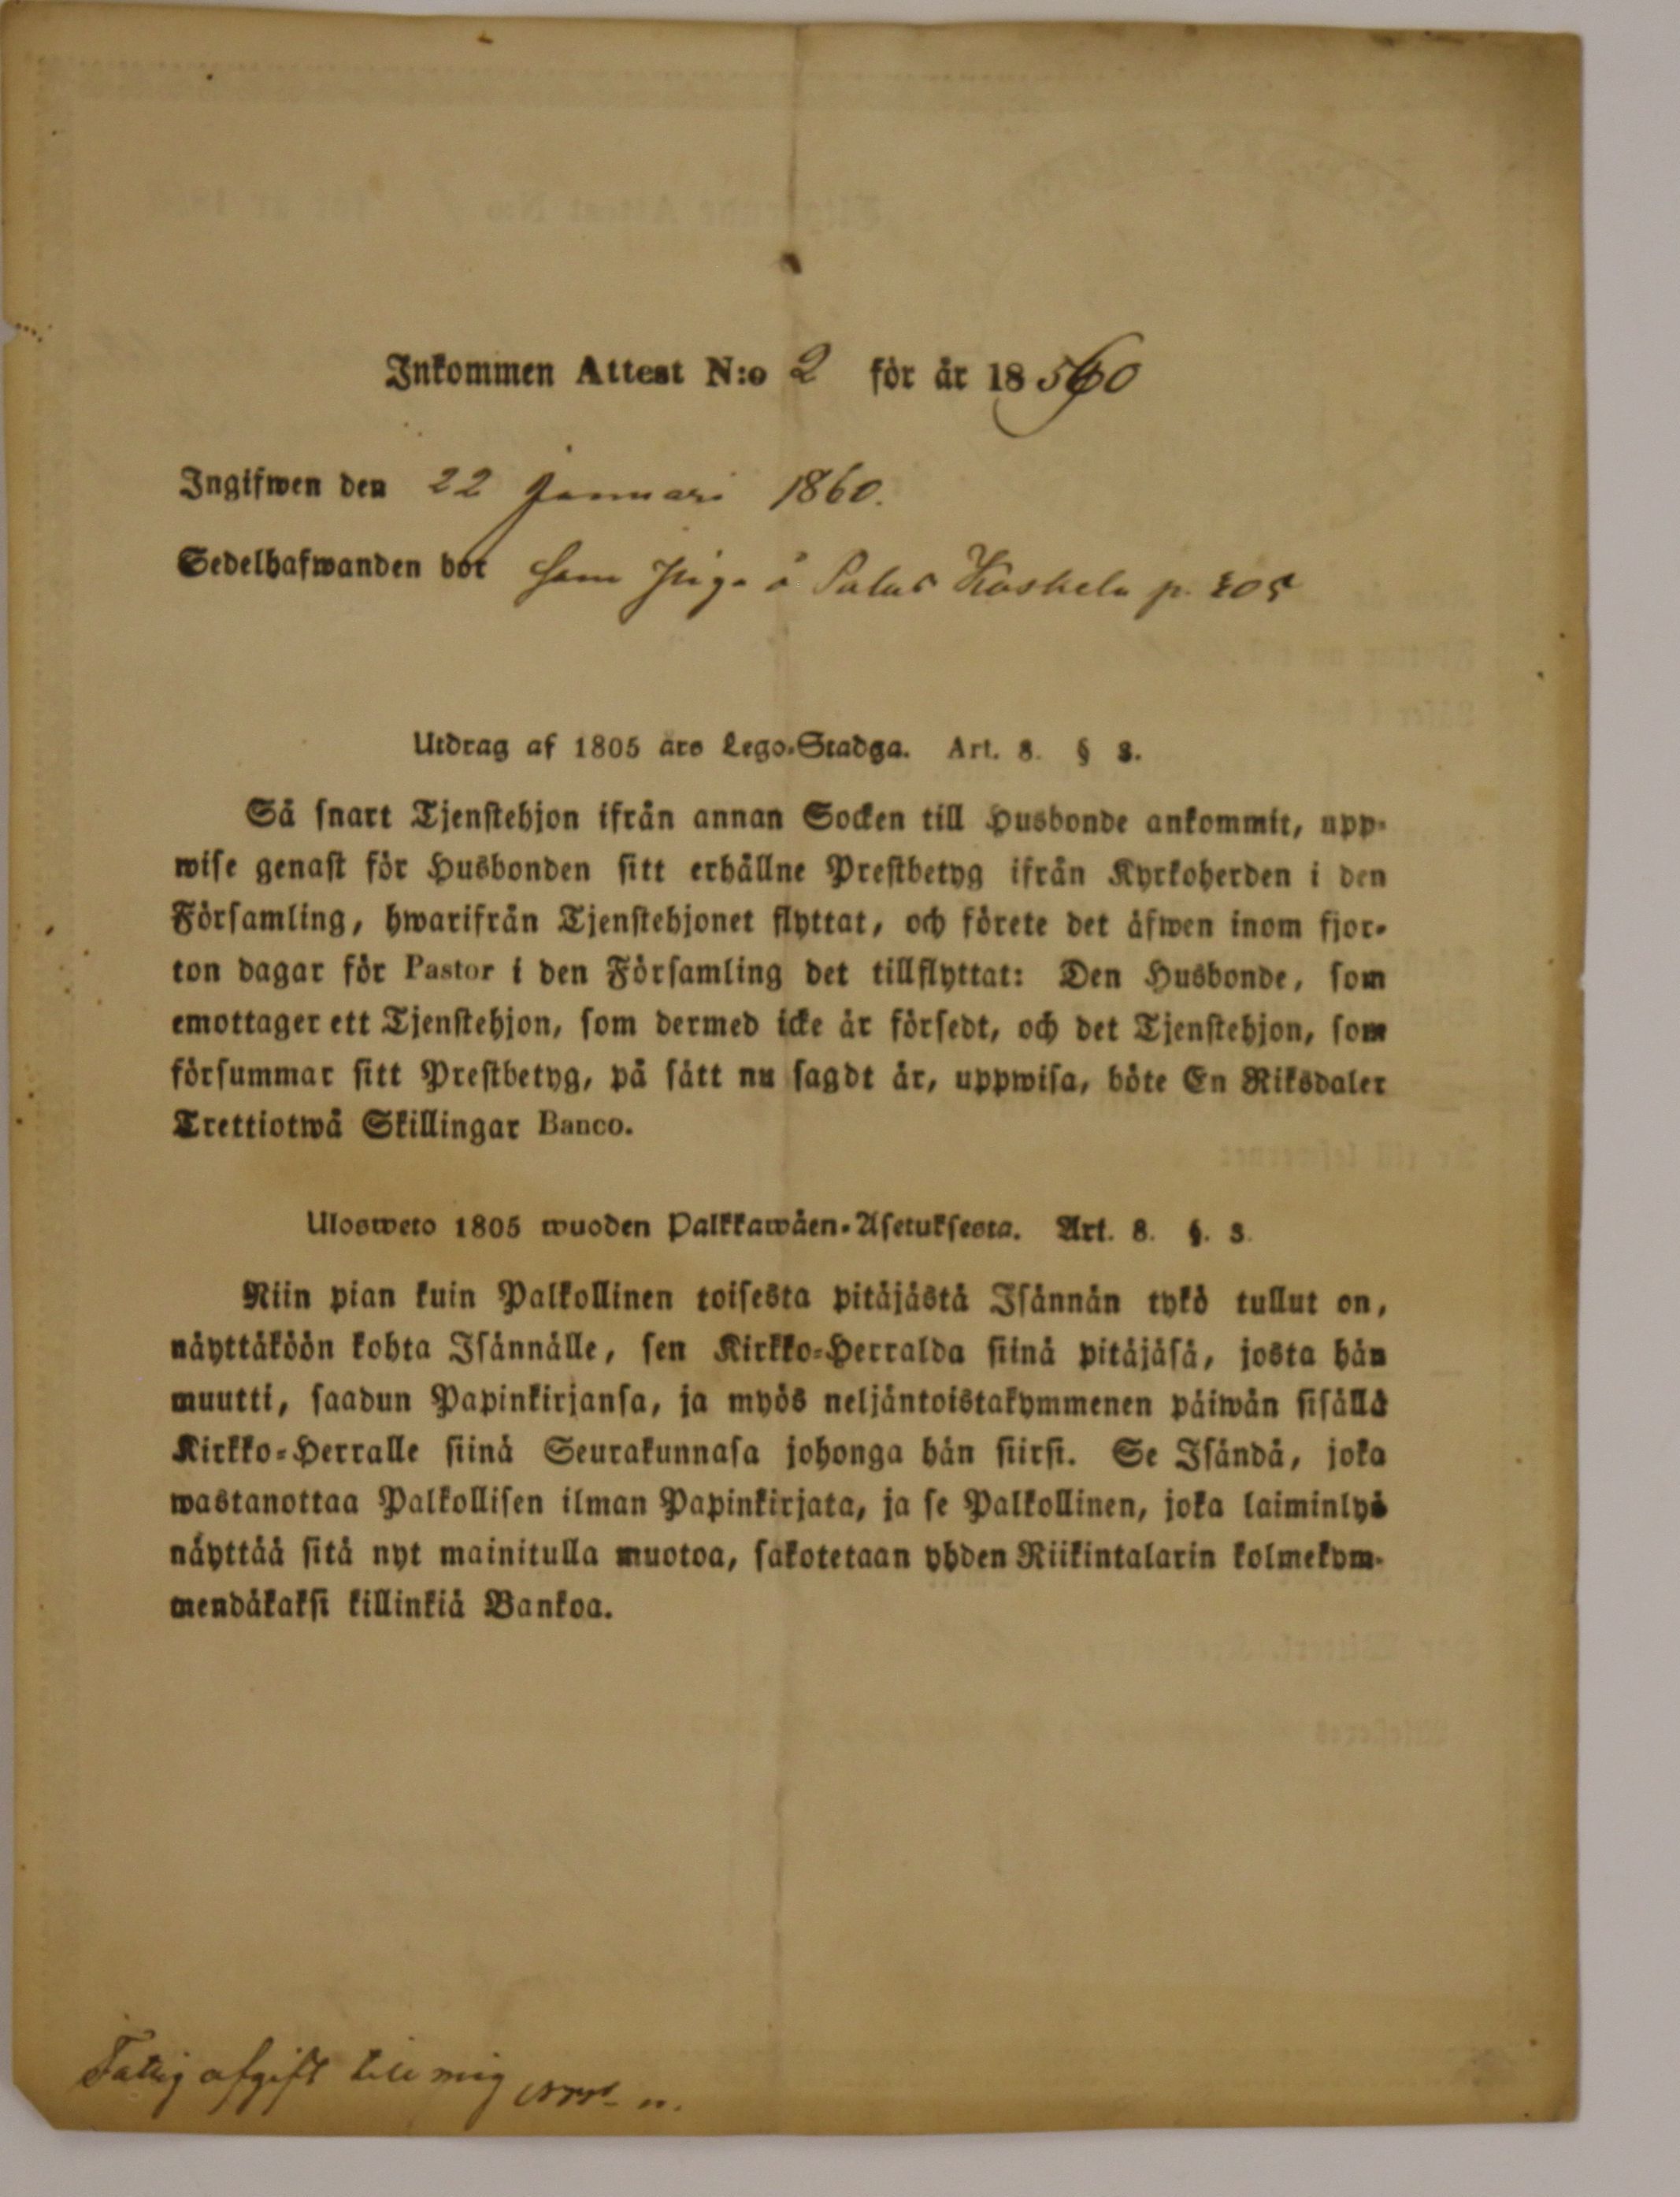 Inkommen Attest N:o 2 för år 18560
Ingifwen den 22 Januari 1860.
Sedelhafwanden bor som Piga å Palus Koskela p. 205
Utdrag af 1805 års Lego-Stadga. Art. 8. § 3.
Så snart Tjenstehjon ifrån annan Socken till Husbonde ankommit, upp-
wise genast för Husbonden sitt erhållne Prestbetyg ifrån Kyrkoherden i den
Församling, hwarifrån Tjenstehjonet flyttat, och förete det äfwen inom fjor-
ton dagar för Pastor i den Församling det tillflyttat: Den Husbonde, som
emottager ett Tjenstehjon, som dermed icke är försedt, och det Tjenstehjon, som
försummar sitt Prestbetyg, på sätt nu sagdt är, uppwisa, böte En Riksdaler
Trettiotwå Skillingar Banco.
Ulosweto 1805 wuoden Palkkawäen-Asetuksesta. Art. 8. §. 3.
Niin pian kuin Palkollinen toisesta pitäjästä Isännän tykö tullut on,
näyttäköön kohta Isännälle, sen Kirkko-Herralda siinä pitäjäsä, josta hän
muutti, saadun Papinkirjansa, ja myös neljäntoistakymmenen päiwän sisällä
Kirkko-Herralle siinä Seurakunnasa johonga hän siirsi. Se Isändä, joka
wastanottaa Palkollisen ilman Papinkirjata, ja se Palkollinen, joka laiminlyö
näyttää sitä nyt mainitulla muotoa, sakotetaan yhden Riikintalarin kolmekym-
mendäkaksi killinkiä Bankoa.
Fattig afgift till mig